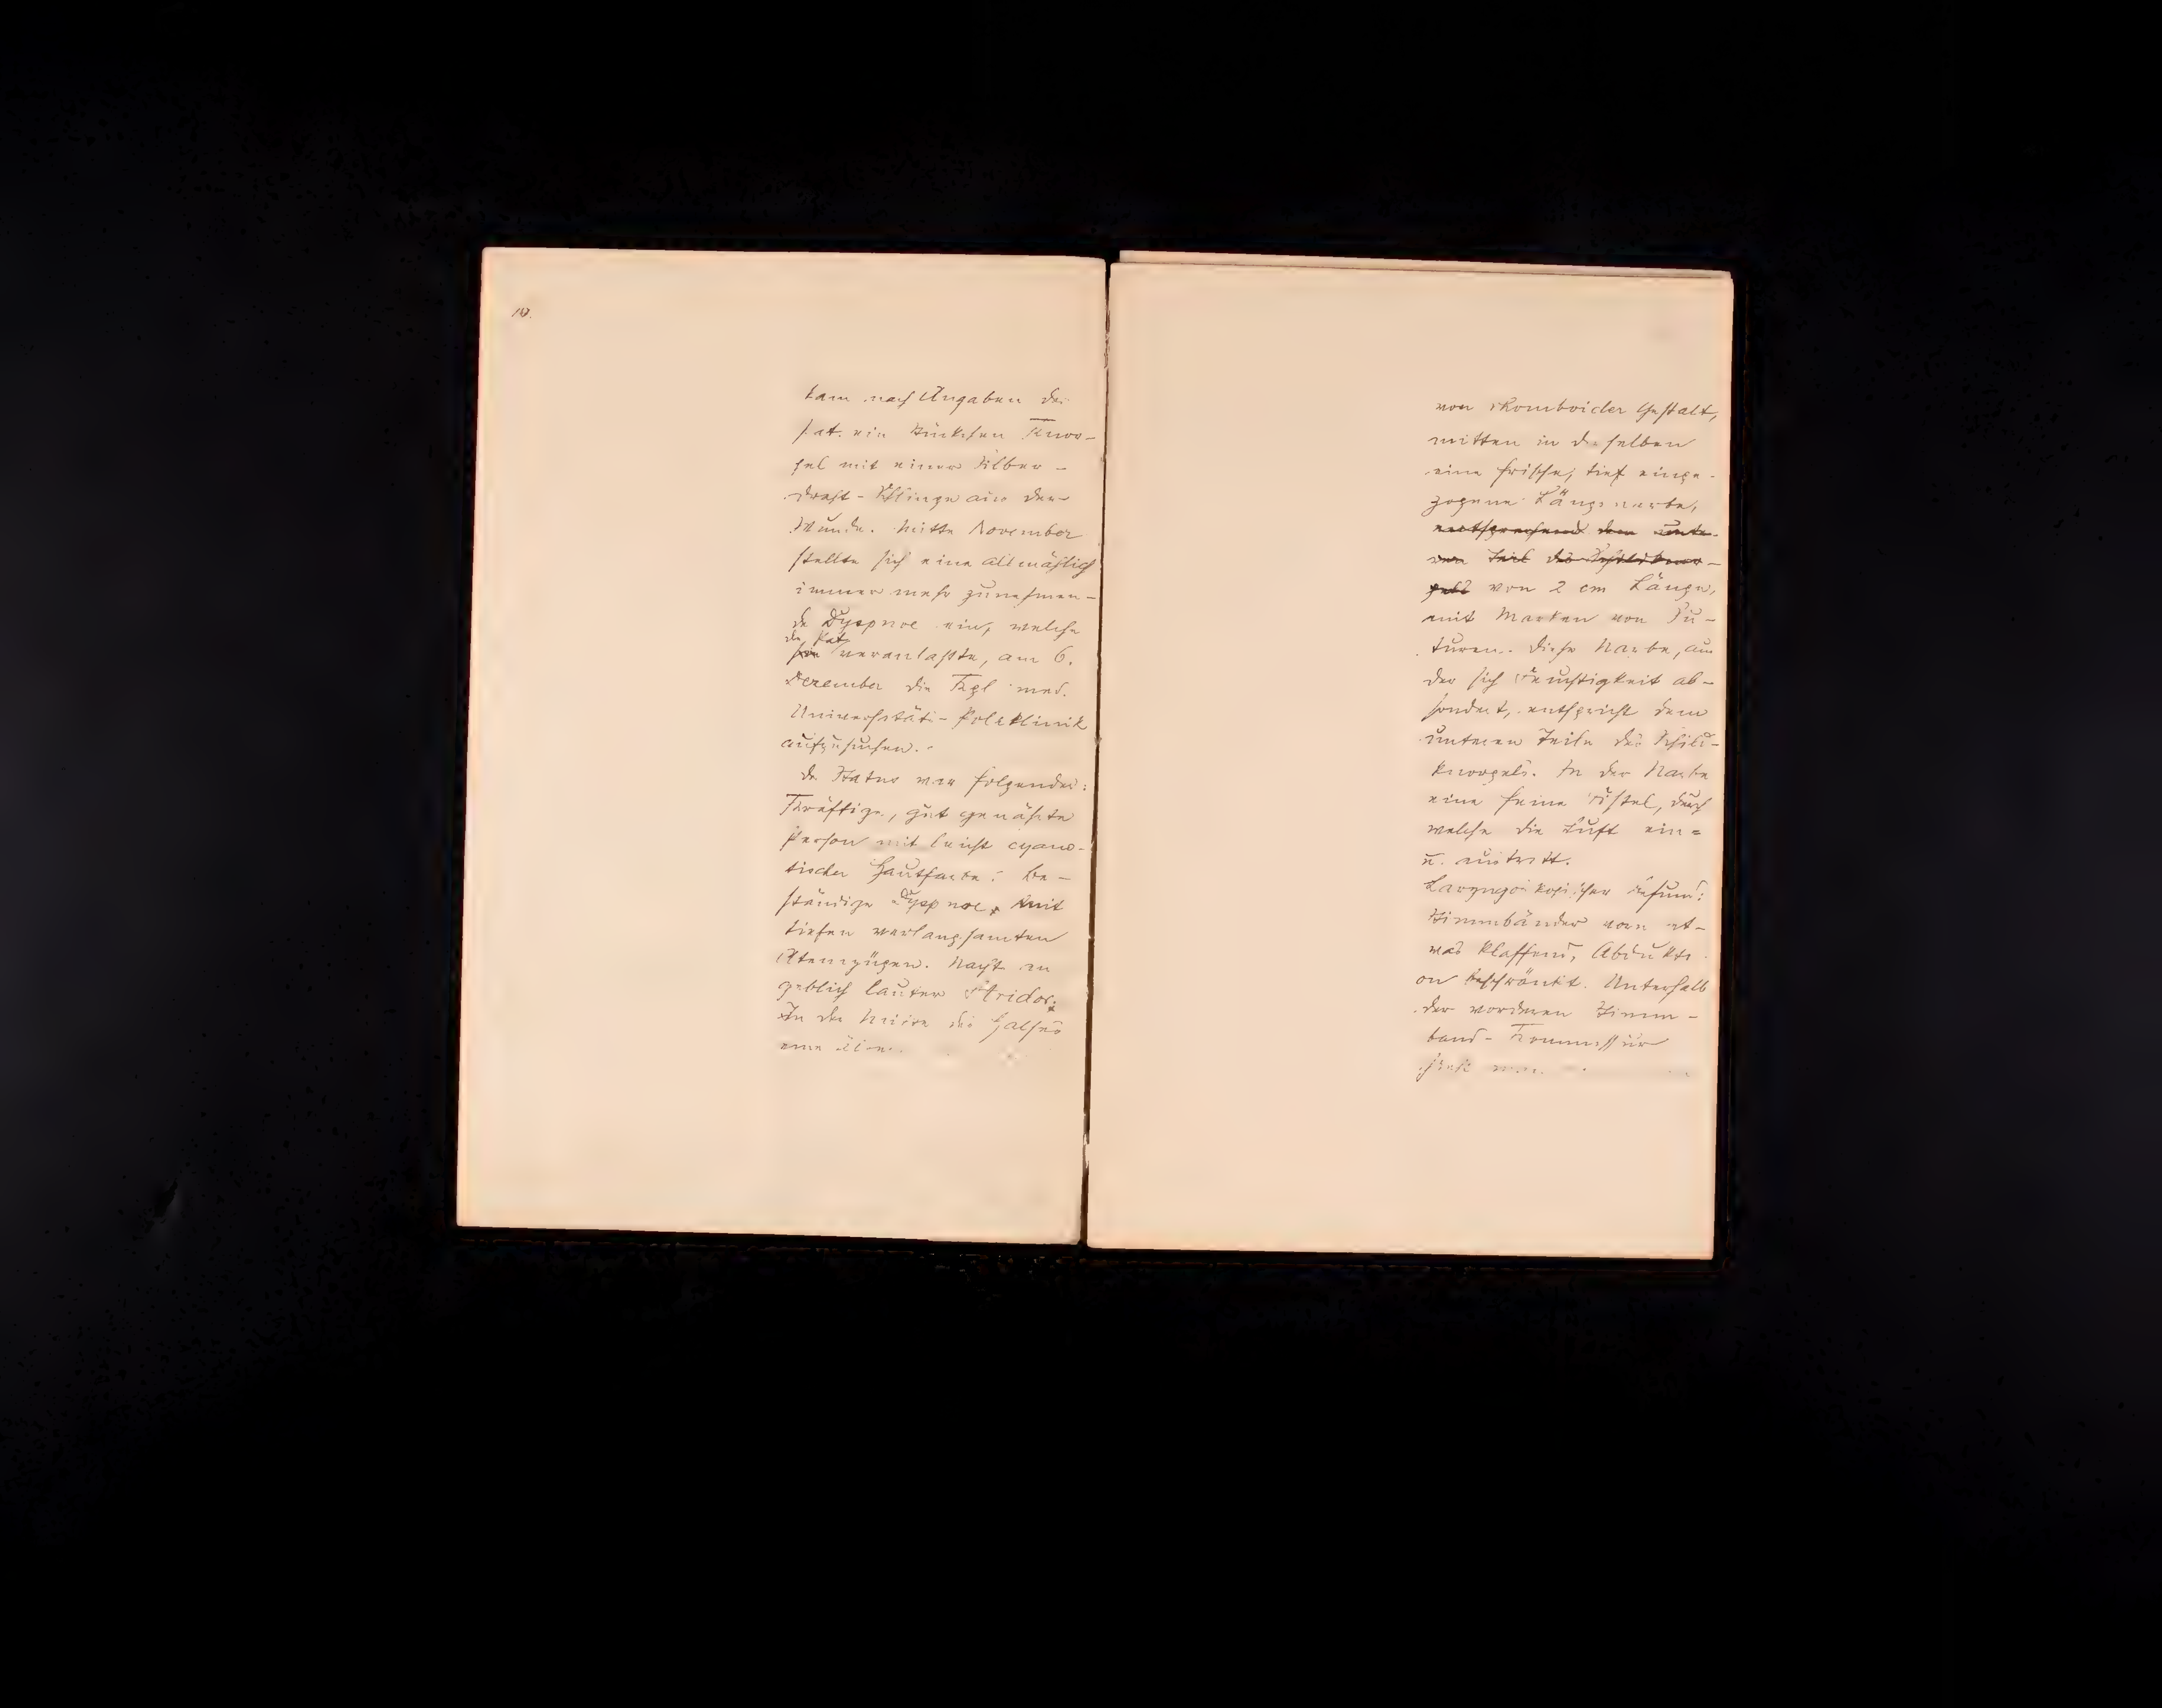 kam nach Angaben der
Pat. ein Stückchen Knor-
pel mit einer Silber-
draht-Schlinge aus der
Wunde. Mitte November
stellte sich eine allmählich
immer mehr zunehmen-
de Dyspnoe ein, welche
die Pat. veranlaßte, am 6.
Dezember die Kgl. med.
Universitäts-Poliklinik
aufzusuchen.
Der Status war folgender:
Kräftige, gut genährte
Person mit leicht cyano-
tischer Hautfarbe: be-
ständige Dyspnoe, mit
tiefen verlangsamten
Atemzügen. Nachts an
geblich lauter Stridor.
In der Mitte des Halses
eine
von rhomboider Gestalt,
mitten in derselben
eine frische, tief einge-
zogene Längsnarbe,
entsprechend dem unte-
ren Teil des Schildknor-
pels von 2 cm Länge,
mit Marken von Su-
turen. Diese Narbe, aus
der sich Feuchtigkeit ab-
sondert, entspricht dem
unteren Teile des Schild-
knorpels. In der Narbe
eine feine Fistel, durch
welche die Luft ein=
u. austritt.
Laryngoskopischer Befund:
Stimmbänder vorn et-
was klaffend, Abdukti
on beschränkt. Unterhalb
der vorderen Stimm-
band-Kommissur
sieht man